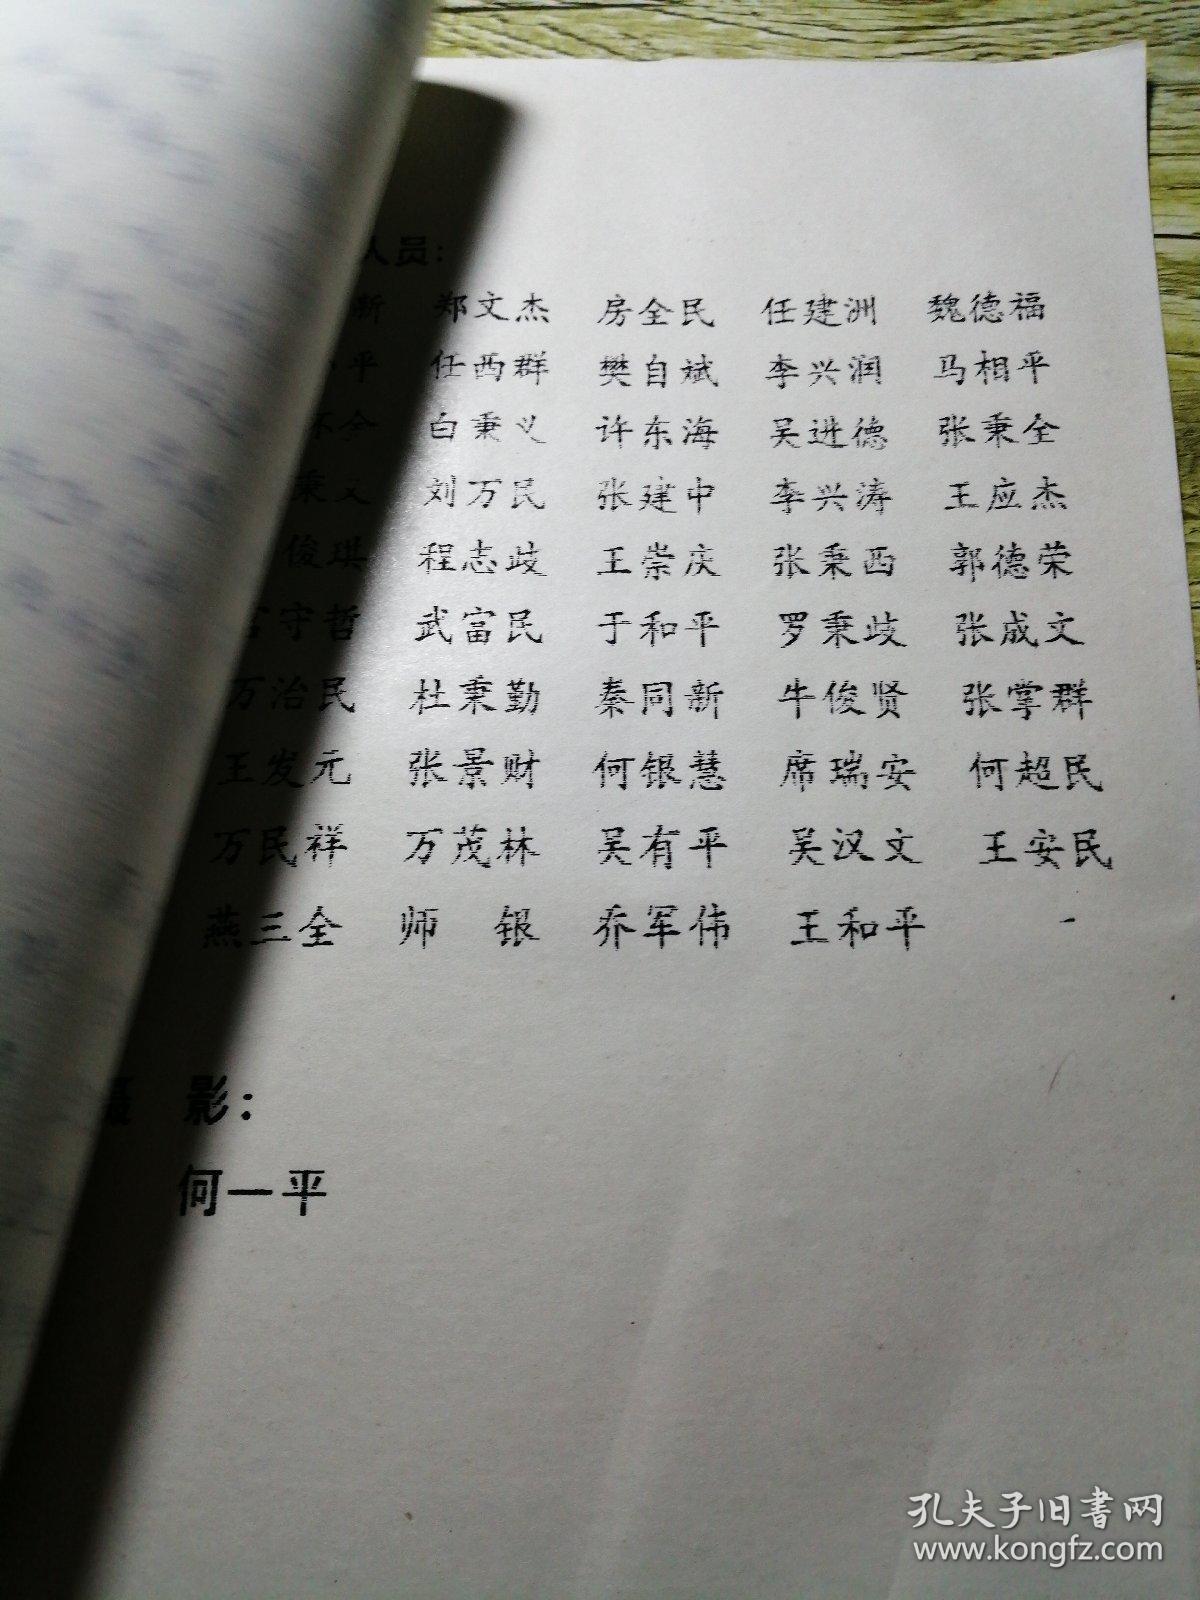 人员：
新 郑文杰 房全民 任建洲 魏德福
平 任西群 樊自斌 李兴润 马相平
怀全 白秉义 许东海 吴进德 张秉全
秉义 刘万民 张建中 李兴涛 王应杰
俊琪 程志歧 王崇庆 张秉西 郭德荣
宫守哲 武富民 于和平 罗秉歧 张成文
万治民 杜秉勤 秦同新 牛俊贤 张掌群
王发元 张景财 何银慧 席瑞安 何超民
万民祥 万茂林 吴有平 吴汉文 王安民
燕三全 师 银 乔军伟 王和平
摄 影：
何一平
孔夫子旧书网
www.kongfz.com